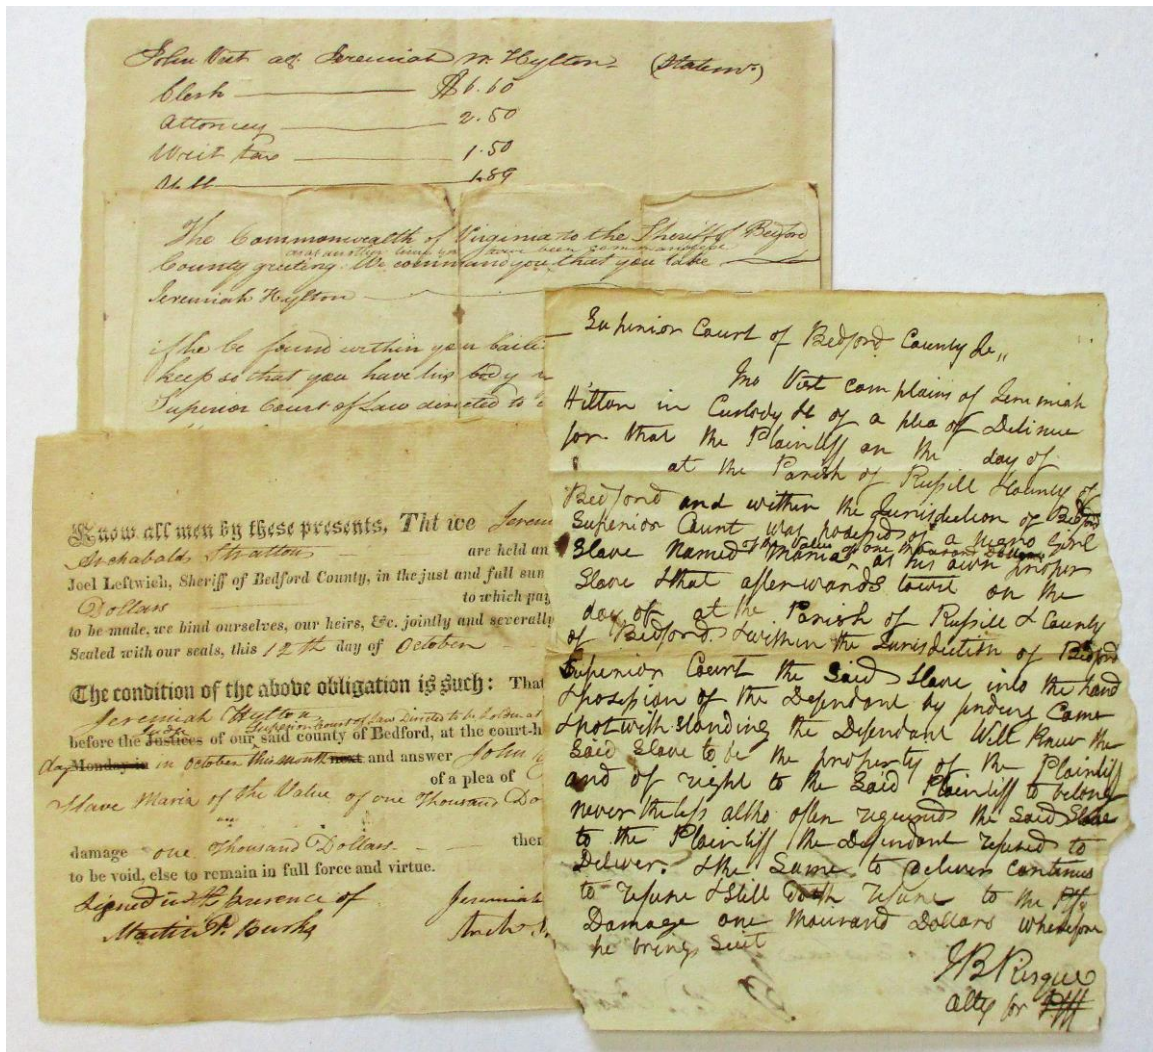 John Vest agt Jeremiah W. Hylton (Statemt)
Clerk $6.60
Attorney 2.50
Writ tax 1.50
1.89
The Commonwealth of Virginia to the Sheriff of Bedford
as at another time you have been commanded
County greeting. We command you that you take
Jeremiah Hylton
if he be found within your baili
keep so that you have his body
Superior Court of Law directed to
Know all men by these presents, Tht we Jerem
Archabald Stratton are held an
Joel Leftwich, Sheriff of Bedford County, in the just and full sum
Dollars to which pay
to be made, we bind ourselves, our heirs, &c. jointly and severally
Sealed with our seals, this 12th day of October
The condition of the above obligation is such: That
Jeremiah Hylton
Superior Court of Law directed to be holden at
before the Justices of our said county of Bedford, at the court-h
day Monday in in October this month next and answer John
of a plea of
Slave Maria of the Value of one Thousand Do
damage one Thousand Dollars. then
to be void, else to remain in full force and virtue.
Signed in the presence of Jeremiah
Martin P. Burks Arch
Superior Court of Bedford County Sc,,
Jno Vest complains of Jeremiah
Hilton in Custody &c of a plea of Detinue
for that the Plaintiff on the day of
at the Parish of Russill & County of
Bedford and within the Jurisdiction of Bedford
Superior Court was possessed of a negro Girl
of the Value of one thousand Dollars
Slave Named Maria as his own proper
Slave & that afterwards towit on the
day of at the Parish of Russill & County
of Bedford & within the Jurisdiction of Bedford
Superior Court the Said Slave into the hand
& possession of the Defendant by finding Came
& notwithstanding the Defendant Well knew the
Said Slave to be the property of the Plaintiff
and of right to the Said Plaintiff to belong
nevertheless altho often required the Said Slave
to the Plaintiff the Defendant refused to
Deliver. & the Same to deliver continues
to refuse & Still doth refuse to the Plff
Damage one thousand Dollars wherefore
he brings Suit
J B Risque
atty for Plff